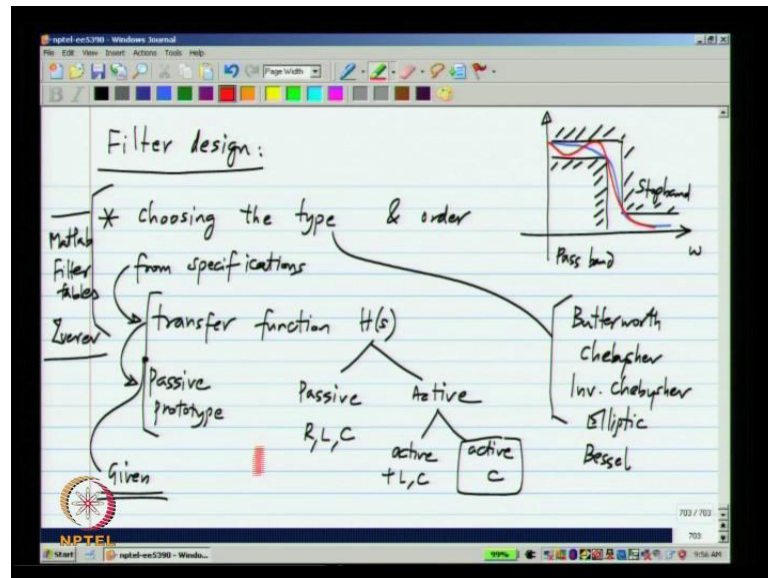 nptel-ee5390 - Windows Journal
File Edit View Insert Actions Tools Help
Page Width
B I
Filter design:
* Choosing the type & order
from specifications
Matlab
Filter
tables
Zverev
transfer function H(s)
Passive
prototype
Given
Passive
R, L, C
Active
active
+ L, C
active
C
Stopband
Pass band
ω
Butterworth
Chebyshev
Inv. Chebyshev
Elliptic
Bessel
703 / 703
703
NPTEL
Start
nptel-ee5390 - Windo...
99%
9:56 AM